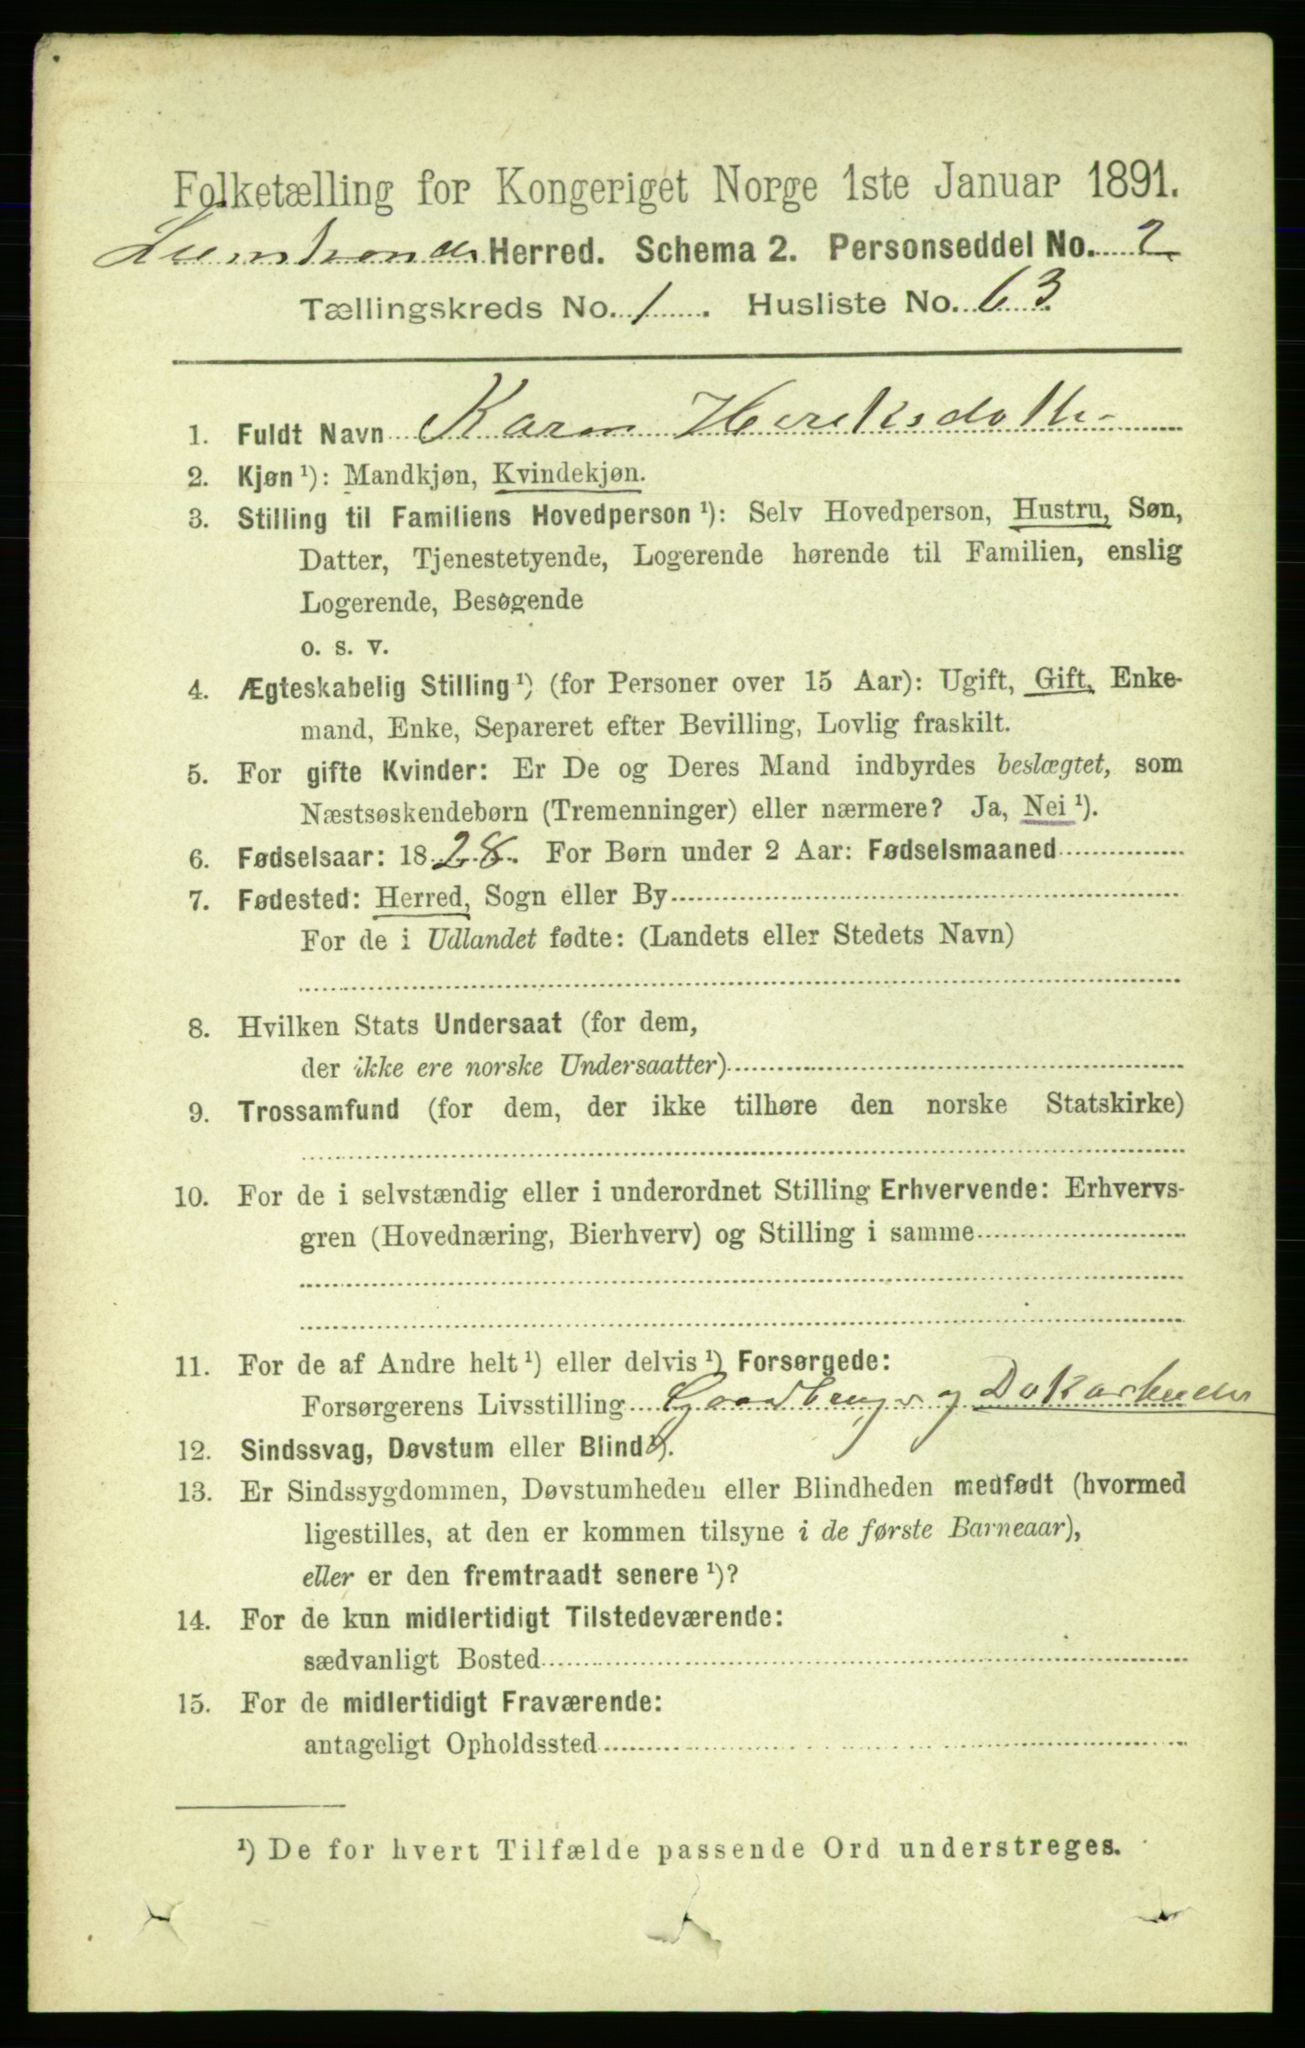 Folketælling for Kongeriget Norge 1ste Januar 1891.
Herred. Schema 2. Personseddel No. 2
Tællingskreds No. 1. Husliste No. 63
1. Fuldt Navn Karen
2. Kjøn ¹): Mandkjøn, Kvindekjøn.
3. Stilling til Familiens Hovedperson ¹): Selv Hovedperson, Hustru, Søn,
Datter, Tjenestetyende, Logerende hørende til Familien, enslig
Logerende, Besøgende
o. s. v.
4. Ægteskabelig Stilling ¹) (for Personer over 15 Aar): Ugift, Gift, Enke-
mand, Enke, Separeret efter Bevilling, Lovlig fraskilt.
5. For gifte Kvinder: Er De og Deres Mand indbyrdes beslægtet, som
Næstsøskendebørn (Tremenninger) eller nærmere? Ja, Nei ¹).
6. Fødselsaar: 1828. For Børn under 2 Aar: Fødselsmaaned
7. Fødested: Herred, Sogn eller By
For de i Udlandet fødte: (Landets eller Stedets Navn)
8. Hvilken Stats Undersaat (for dem,
der ikke ere norske Undersaatter)
9. Trossamfund (for dem, der ikke tilhøre den norske Statskirke)
10. For de i selvstændig eller i underordnet Stilling Erhvervende: Erhvervs-
gren (Hovednæring, Bierhverv) og Stilling i samme
11. For de af Andre helt ¹) eller delvis ¹) Forsørgede:
Forsørgerens Livsstilling Gaardbruger og
12. Sindssvag, Døvstum eller Blind ¹).
13. Er Sindssygdommen, Døvstumheden eller Blindheden medfødt (hvormed
ligestilles, at den er kommen tilsyne i de første Barneaar),
eller er den fremtraadt senere ¹)?
14. For de kun midlertidigt Tilstedeværende:
sædvanligt Bosted
15. For de midlertidigt Fraværende:
antageligt Opholdssted
¹) De for hvert Tilfælde passende Ord understreges.